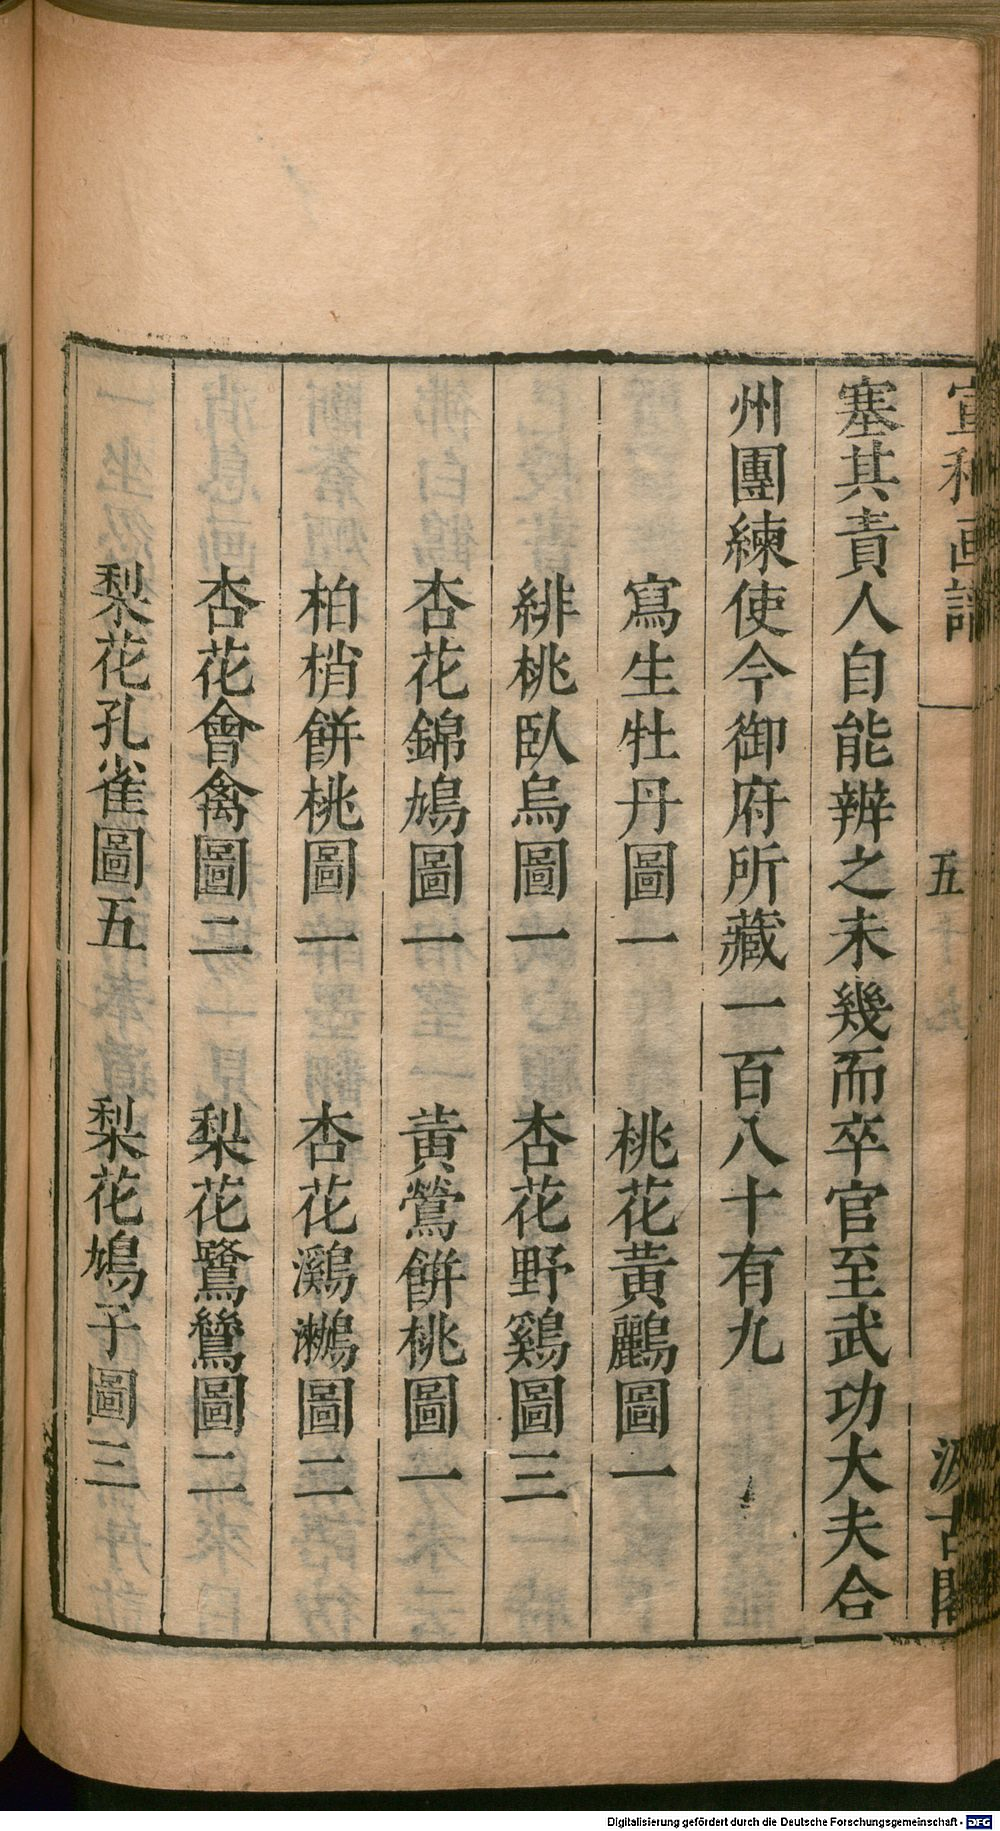 宣和画譜 五 汲古閣
塞其責人自能辨之未幾而卒官至武功大夫合
州團練使今御府所藏一百八十有九
寫生牡丹圖一 桃花黃鸝圖一
緋桃臥烏圖一 杏花野鷄圖三
杏花錦鳩圖一 黃鶯餅桃圖一
柏梢餅桃圖一 杏花鸂鶒圖二
杏花會禽圖二 梨花鷺鷥圖二
梨花孔雀圖五 梨花鳩子圖三
Digitalisierung gefördert durch die Deutsche Forschungsgemeinschaft - DFG